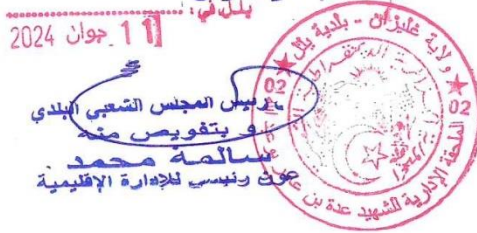 يلل في:
11 جوان 2024
رئيس المجلس الشعبي البلدي
و بتفويض منه
سالمة محمد
عون رئيسي للإدارة الإقليمية
ولاية غليزان - بلدية يلل
02
02
الملحقة الإدارية للشهيد عدة بن